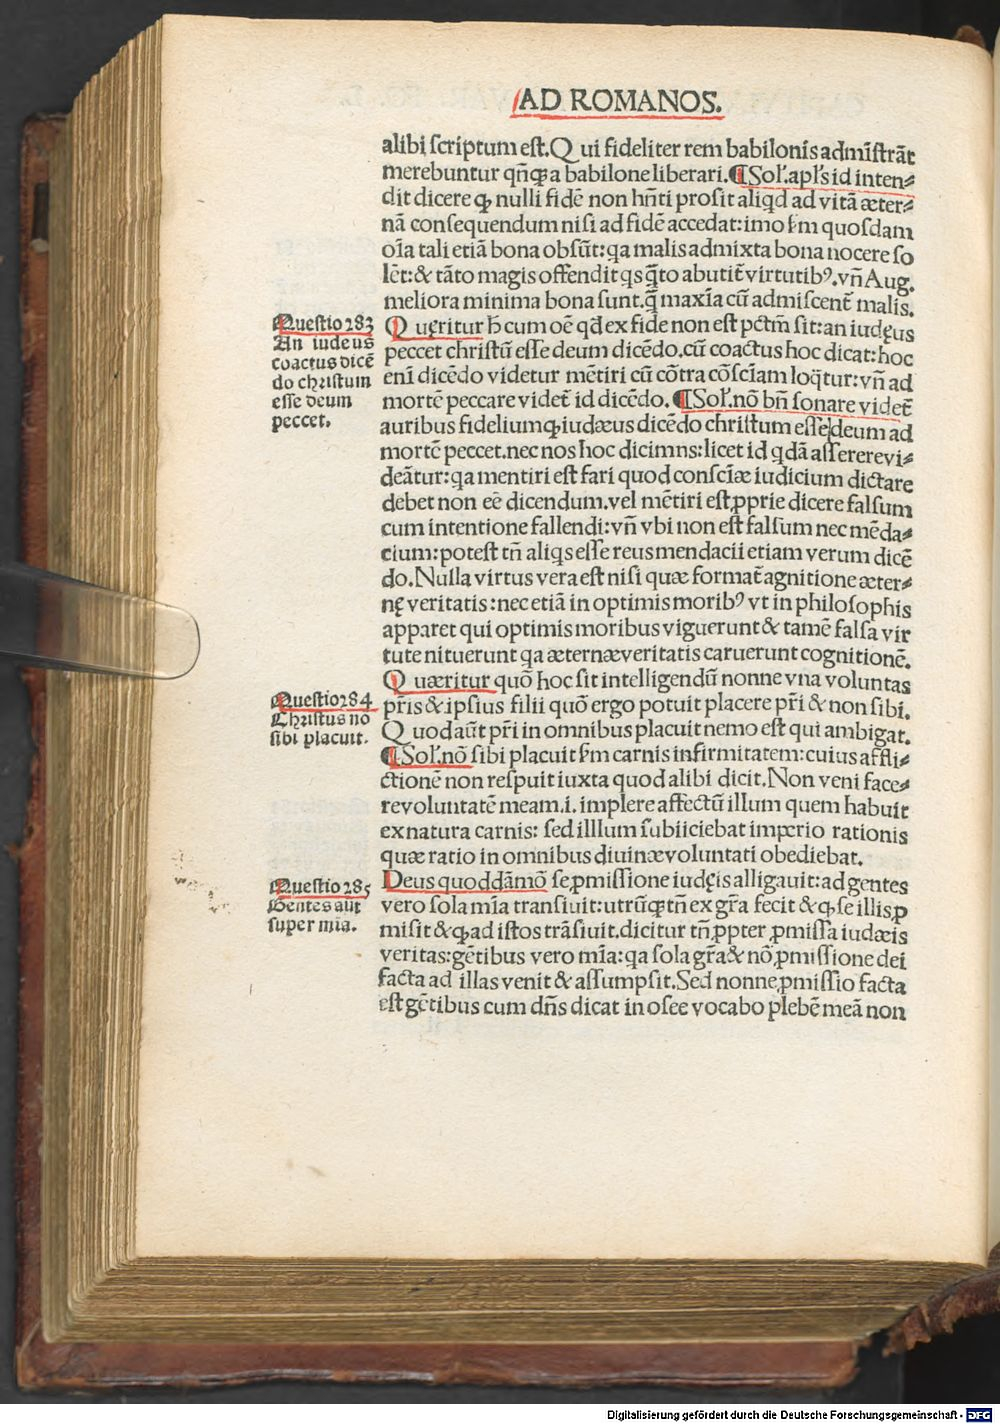 AD ROMANOS.
alibi scriptum est. Qui fideliter rem babilonis admīstrāt
merebuntur qñꝙ a babilone liberari. ¶ Sol'. apl's id inten⸗
dit dicere ꝙ nulli fidē non hñti prosit aliqd ad vitā æter⸗
nā consequendum nisi ad fidē accedat: imo ſm quosdam
oīa tali etiā bona obsūt: qa malis admixta bona nocere so
lēt: & tāto magis offendit qs q̄to abutit̄ virtutibꝰ. vñ Aug.
meliora minima bona sunt. q̄ maxīa cū admiscent̄ malis.
Questio 283
An iudeus
coactus dicē
do christum
esse deum
peccet.
Quęritur ħ cum oē qd ex fide non est pctm̄ sit: an iudęus
peccet christū esse deum dicēdo. cū coactus hoc dicat: hoc
enī dicēdo videtur mētiri cū cōtra cōsciam loq̄tur: vñ ad
mortē peccare videt̄ id dicēdo. ¶ Sol'. nō bñ sonare videt̄
auribus fidelium ꝙ iudæus dicēdo christum esse deum ad
mortē peccet. nec nos hoc dicimns: licet id qdā asserere vi⸗
deātur: qa mentiri est fari quod consciæ iudicium dictare
debet non eē dicendum. vel mētiri est ꝓprie dicere falsum
cum intentione fallendi: vñ vbi non est falsum nec mēda⸗
cium: potest tñ aliqs esse reus mendacii etiam verum dicē
do. Nulla virtus vera est nisi quæ format̄ agnitione æter⸗
nę veritatis: nec etiā in optimis moribꝰ vt in philosophis
apparet qui optimis moribus viguerunt & tamē falsa vir
tute nituerunt qa æternæ veritatis caruerunt cognitionē.
Questio 284
Christus no
sibi placuit.
Quæritur quō hoc sit intelligendū nonne vna voluntas
pr̄is & ipsius filii quō ergo potuit placere pr̄i & non sibi.
Quod aūt pr̄i in omnibus placuit nemo est qui ambigat.
¶ Sol'. nō sibi placuit ſm carnis infirmitatem: cuius affli⸗
ctionē non respuit iuxta quod alibi dicit. Non veni face⸗
re voluntatē meam. i. implere affectū illum quem habuit
ex natura carnis: sed illlum subiiciebat imperio rationis
quæ ratio in omnibus diuinæ voluntati obediebat.
Questio 285
Gentes aūt
super mīa.
Deus quoddāmō se ꝓmissione iudęis alligauit: ad gentes
vero sola mīa transiuit: utrūꝙ tñ ex gr̄a fecit & ꝙ se illis ꝓ
misit & ꝙ ad istos trāsiuit. dicitur tñ ꝓpter ꝓmissa iudæis
veritas: gētibus vero mīa: qa sola gr̄a & nō ꝓmissione dei
facta ad illas venit & assumpsit. Sed nonne ꝓmissio facta
est gētibus cum dñs dicat in osee vocabo plebē meā non
Digitalisierung gefördert durch die Deutsche Forschungsgemeinschaft - DFG